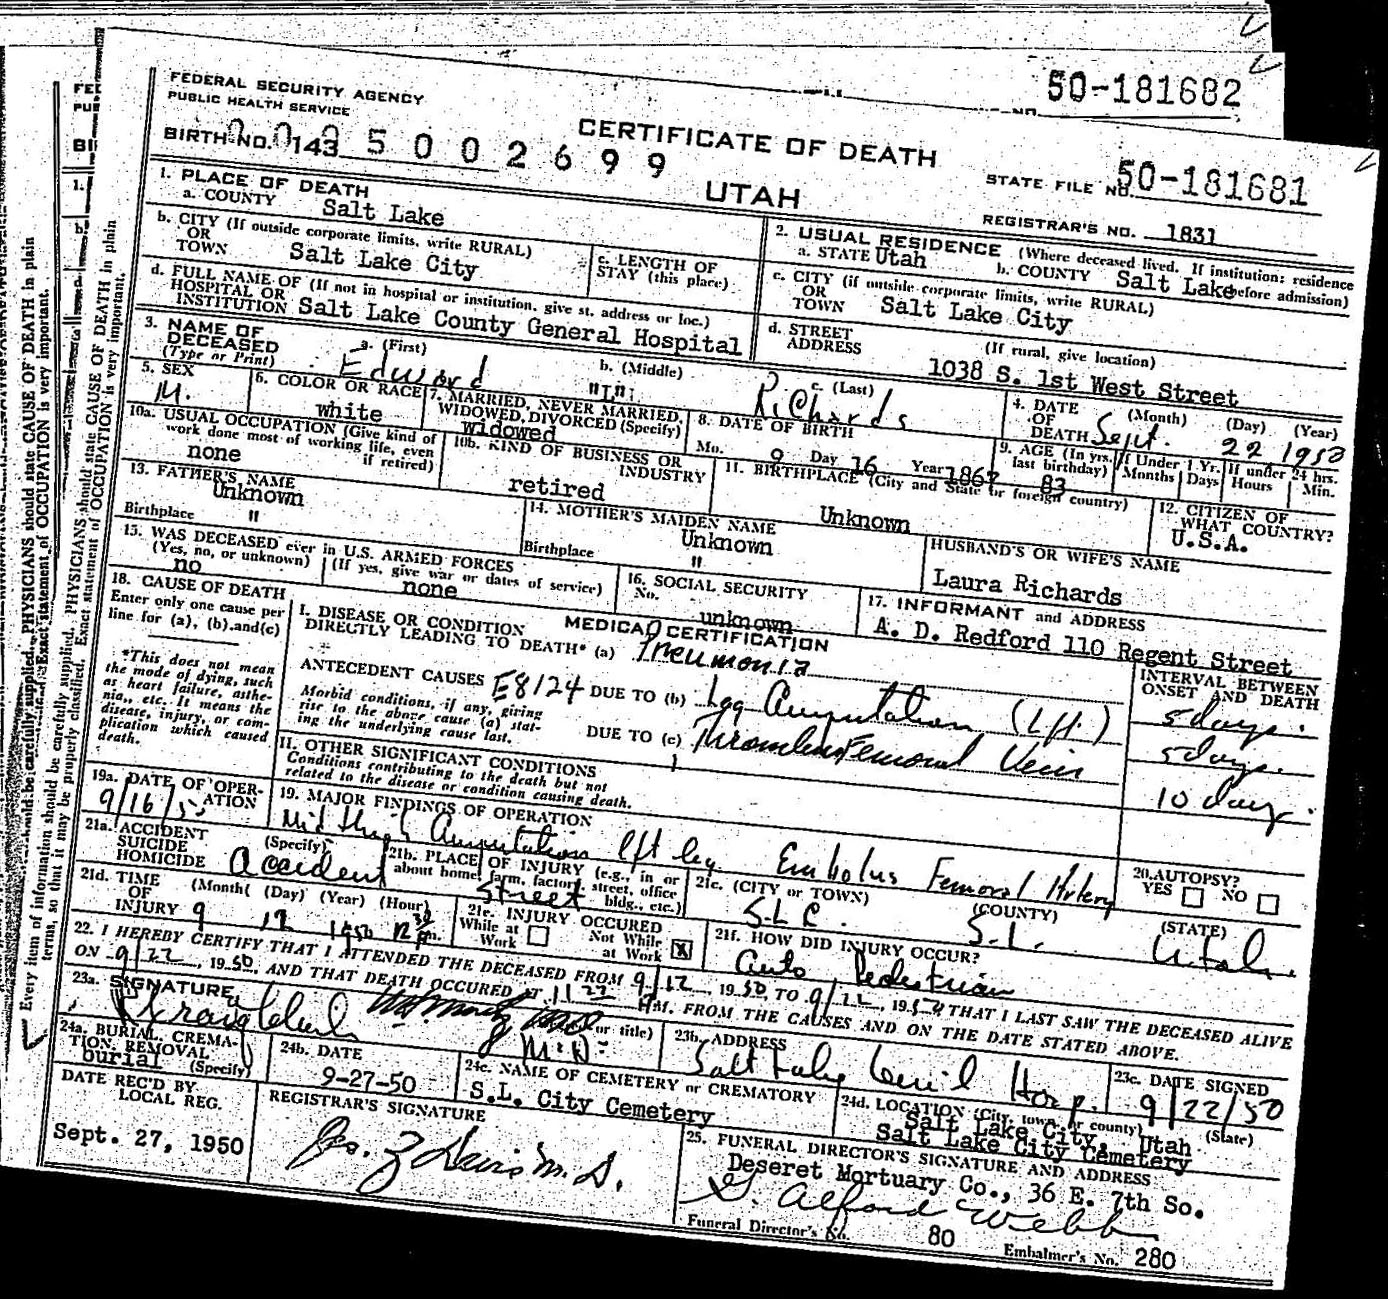 50-181682
FEDERAL SECURITY AGENCY
PUBLIC HEALTH SERVICE
BIRTH NO. 143 5002699
CERTIFICATE OF DEATH
UTAH
STATE FILE NO. 50-181681
REGISTRAR'S NO. 1831
1. PLACE OF DEATH
a. COUNTY Salt Lake
b. CITY (If outside corporate limits, write RURAL)
OR
TOWN Salt Lake City
c. LENGTH OF
STAY (this place)
d. FULL NAME OF (If not in hospital or institution, give st. address or loc.)
HOSPITAL OR
INSTITUTION Salt Lake County General Hospital
2. USUAL RESIDENCE (Where deceased lived. If institution: residence
before admission)
a. STATE Utah b. COUNTY Salt Lake
c. CITY (if outside corporate limits, write RURAL)
OR
TOWN Salt Lake City
d. STREET
ADDRESS (If rural, give location)
1038 S. 1st West Street
3. NAME OF
DECEASED
(Type or Print)
a. (First) Edward
b. (Middle) "I"
c. (Last) Richards
4. DATE
OF
DEATH (Month) (Day) (Year)
Sept. 22 1950
5. SEX M.
6. COLOR OR RACE white
7. MARRIED, NEVER MARRIED,
WIDOWED, DIVORCED (Specify)
widowed
8. DATE OF BIRTH
Mo. 9 Day 16 Year 1867
9. AGE (In yrs.
last birthday) 83
If Under 1 Yr. Months Days
If under 24 hrs. Hours Min.
10a. USUAL OCCUPATION (Give kind of
work done most of working life, even
if retired)
none
10b. KIND OF BUSINESS OR
INDUSTRY
retired
11. BIRTHPLACE (City and State or foreign country)
Unknown
12. CITIZEN OF
WHAT COUNTRY?
U.S.A.
13. FATHER'S NAME
Unknown
Birthplace "
14. MOTHER'S MAIDEN NAME
Unknown
Birthplace "
HUSBAND'S OR WIFE'S NAME
Laura Richards
15. WAS DECEASED ever in U.S. ARMED FORCES
(Yes, no, or unknown) (If yes, give war or dates of service)
no none
16. SOCIAL SECURITY
No. unknown
17. INFORMANT and ADDRESS
A. D. Redford 110 Regent Street
18. CAUSE OF DEATH
Enter only one cause per
line for (a), (b), and (c)
*This does not mean
the mode of dying, such
as heart failure, asthe-
nia, etc. It means the
disease, injury, or com-
plication which caused
death.
MEDICAL CERTIFICATION
I. DISEASE OR CONDITION
DIRECTLY LEADING TO DEATH* (a) Pneumonia
ANTECEDENT CAUSES E8124 DUE TO (b) Leg Amputation (Lft.)
Morbid conditions, if any, giving
rise to the above cause (a) stat-
ing the underlying cause last.
DUE TO (c) Thrombus Femoral Vein
INTERVAL BETWEEN
ONSET AND DEATH
5 days.
5 days.
10 days.
II. OTHER SIGNIFICANT CONDITIONS
Conditions contributing to the death but not
related to the disease or condition causing death.
19a. DATE OF OPER-
ATION
9/16/50
19. MAJOR FINDINGS OF OPERATION
Mid thigh Amputation lft leg Embolus Femoral Artery
20. AUTOPSY?
YES NO
21a. ACCIDENT (Specify)
SUICIDE
HOMICIDE Accident
21b. PLACE OF INJURY (e.g., in or
about home, farm, factory, street, office
bldg., etc.)
Street
21c. (CITY or TOWN) (COUNTY) (STATE)
S.L.C. S.L. Utah
21d. TIME (Month) (Day) (Year) (Hour)
OF
INJURY 9 12 1950 12 30 pm.
21e. INJURY OCCURED
While at Work Not While at Work X
21f. HOW DID INJURY OCCUR?
Auto Pedestrian
22. I HEREBY CERTIFY THAT I ATTENDED THE DECEASED FROM 9/12, 1950, TO 9/22, 1950 THAT I LAST SAW THE DECEASED ALIVE
ON 9/22, 1950, AND THAT DEATH OCCURED AT M. FROM THE CAUSES AND ON THE DATE STATED ABOVE.
23a. SIGNATURE (or title)
Craig Clark M.D.
23b. ADDRESS
Salt Lake Genl Hosp.
23c. DATE SIGNED
9/22/50
24a. BURIAL, CREMA-
TION, REMOVAL
(Specify)
burial
24b. DATE
9-27-50
24c. NAME OF CEMETERY or CREMATORY
S.L. City Cemetery
24d. LOCATION (City, town, or county) (State)
Salt Lake City, Utah
Salt Lake City Cemetery
DATE REC'D BY
LOCAL REG.
Sept. 27, 1950
REGISTRAR'S SIGNATURE
25. FUNERAL DIRECTOR'S SIGNATURE AND ADDRESS
Deseret Mortuary Co., 36 E. 7th So.
Alford Webb
Funeral Director's No. 80 Embalmer's No. 280
Every item of information should be carefully supplied. PHYSICIANS should state CAUSE OF DEATH in plain
terms, so that it may be properly classified. Exact statement of OCCUPATION is very important.